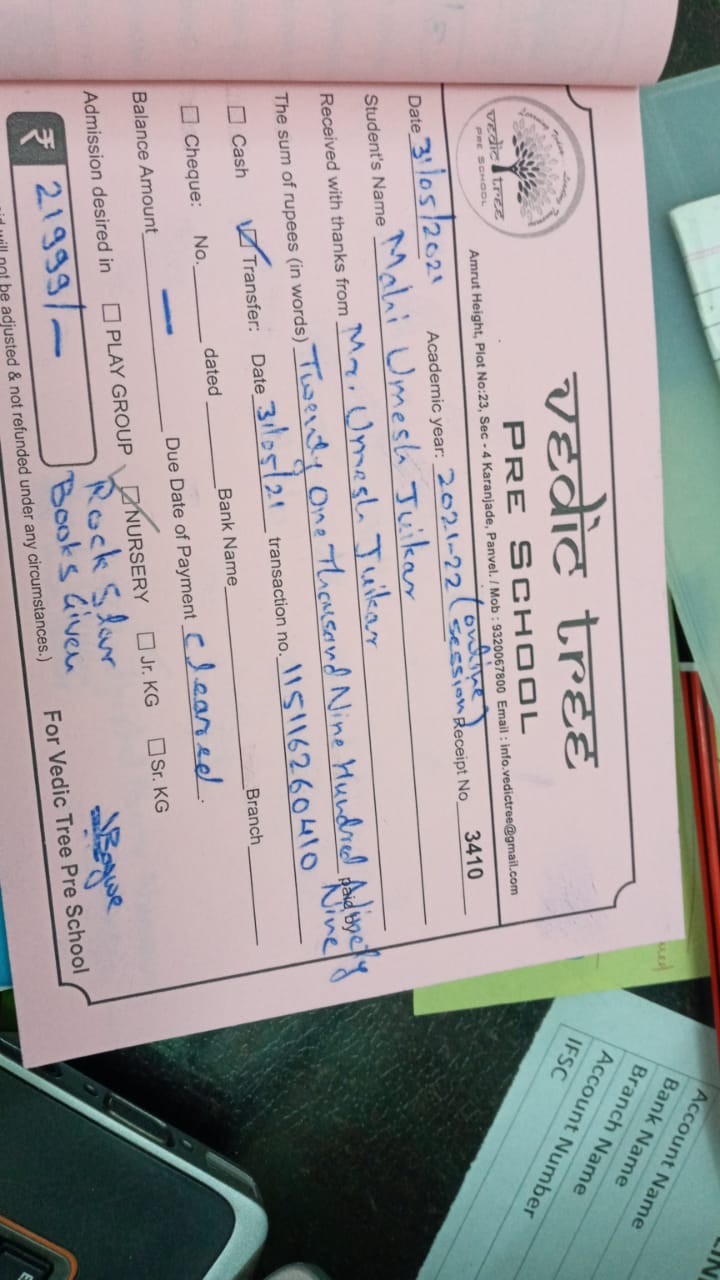 vedic tree
PRE SCHOOL
vedic tree
PRE SCHOOL
Amrut Height, Plot No:23, Sec - 4 Karanjade, Panvel. / Mob : 9320067800 Email : info.vedictree@gmail.com
Date 31/05/2021 Academic year: 2021-22 (online session) Receipt No 3410
Student's Name Mahi Umesh Juikar
Received with thanks from Mr. Umesh Juikar paid by
The sum of rupees (in words) Twenty One Thousand Nine Hundred Ninety Nine
Cash Transfer: Date 31/05/21 transaction no. 115116260410
Cheque: No. dated Bank Name Branch
Balance Amount — Due Date of Payment cleared.
Admission desired in PLAY GROUP NURSERY Jr. KG Sr. KG
₹ 21999/— Rock Star
Books Given
For Vedic Tree Pre School
will not be adjusted & not refunded under any circumstances.)
Account Name
Bank Name
Branch Name
Account Number
IFSC